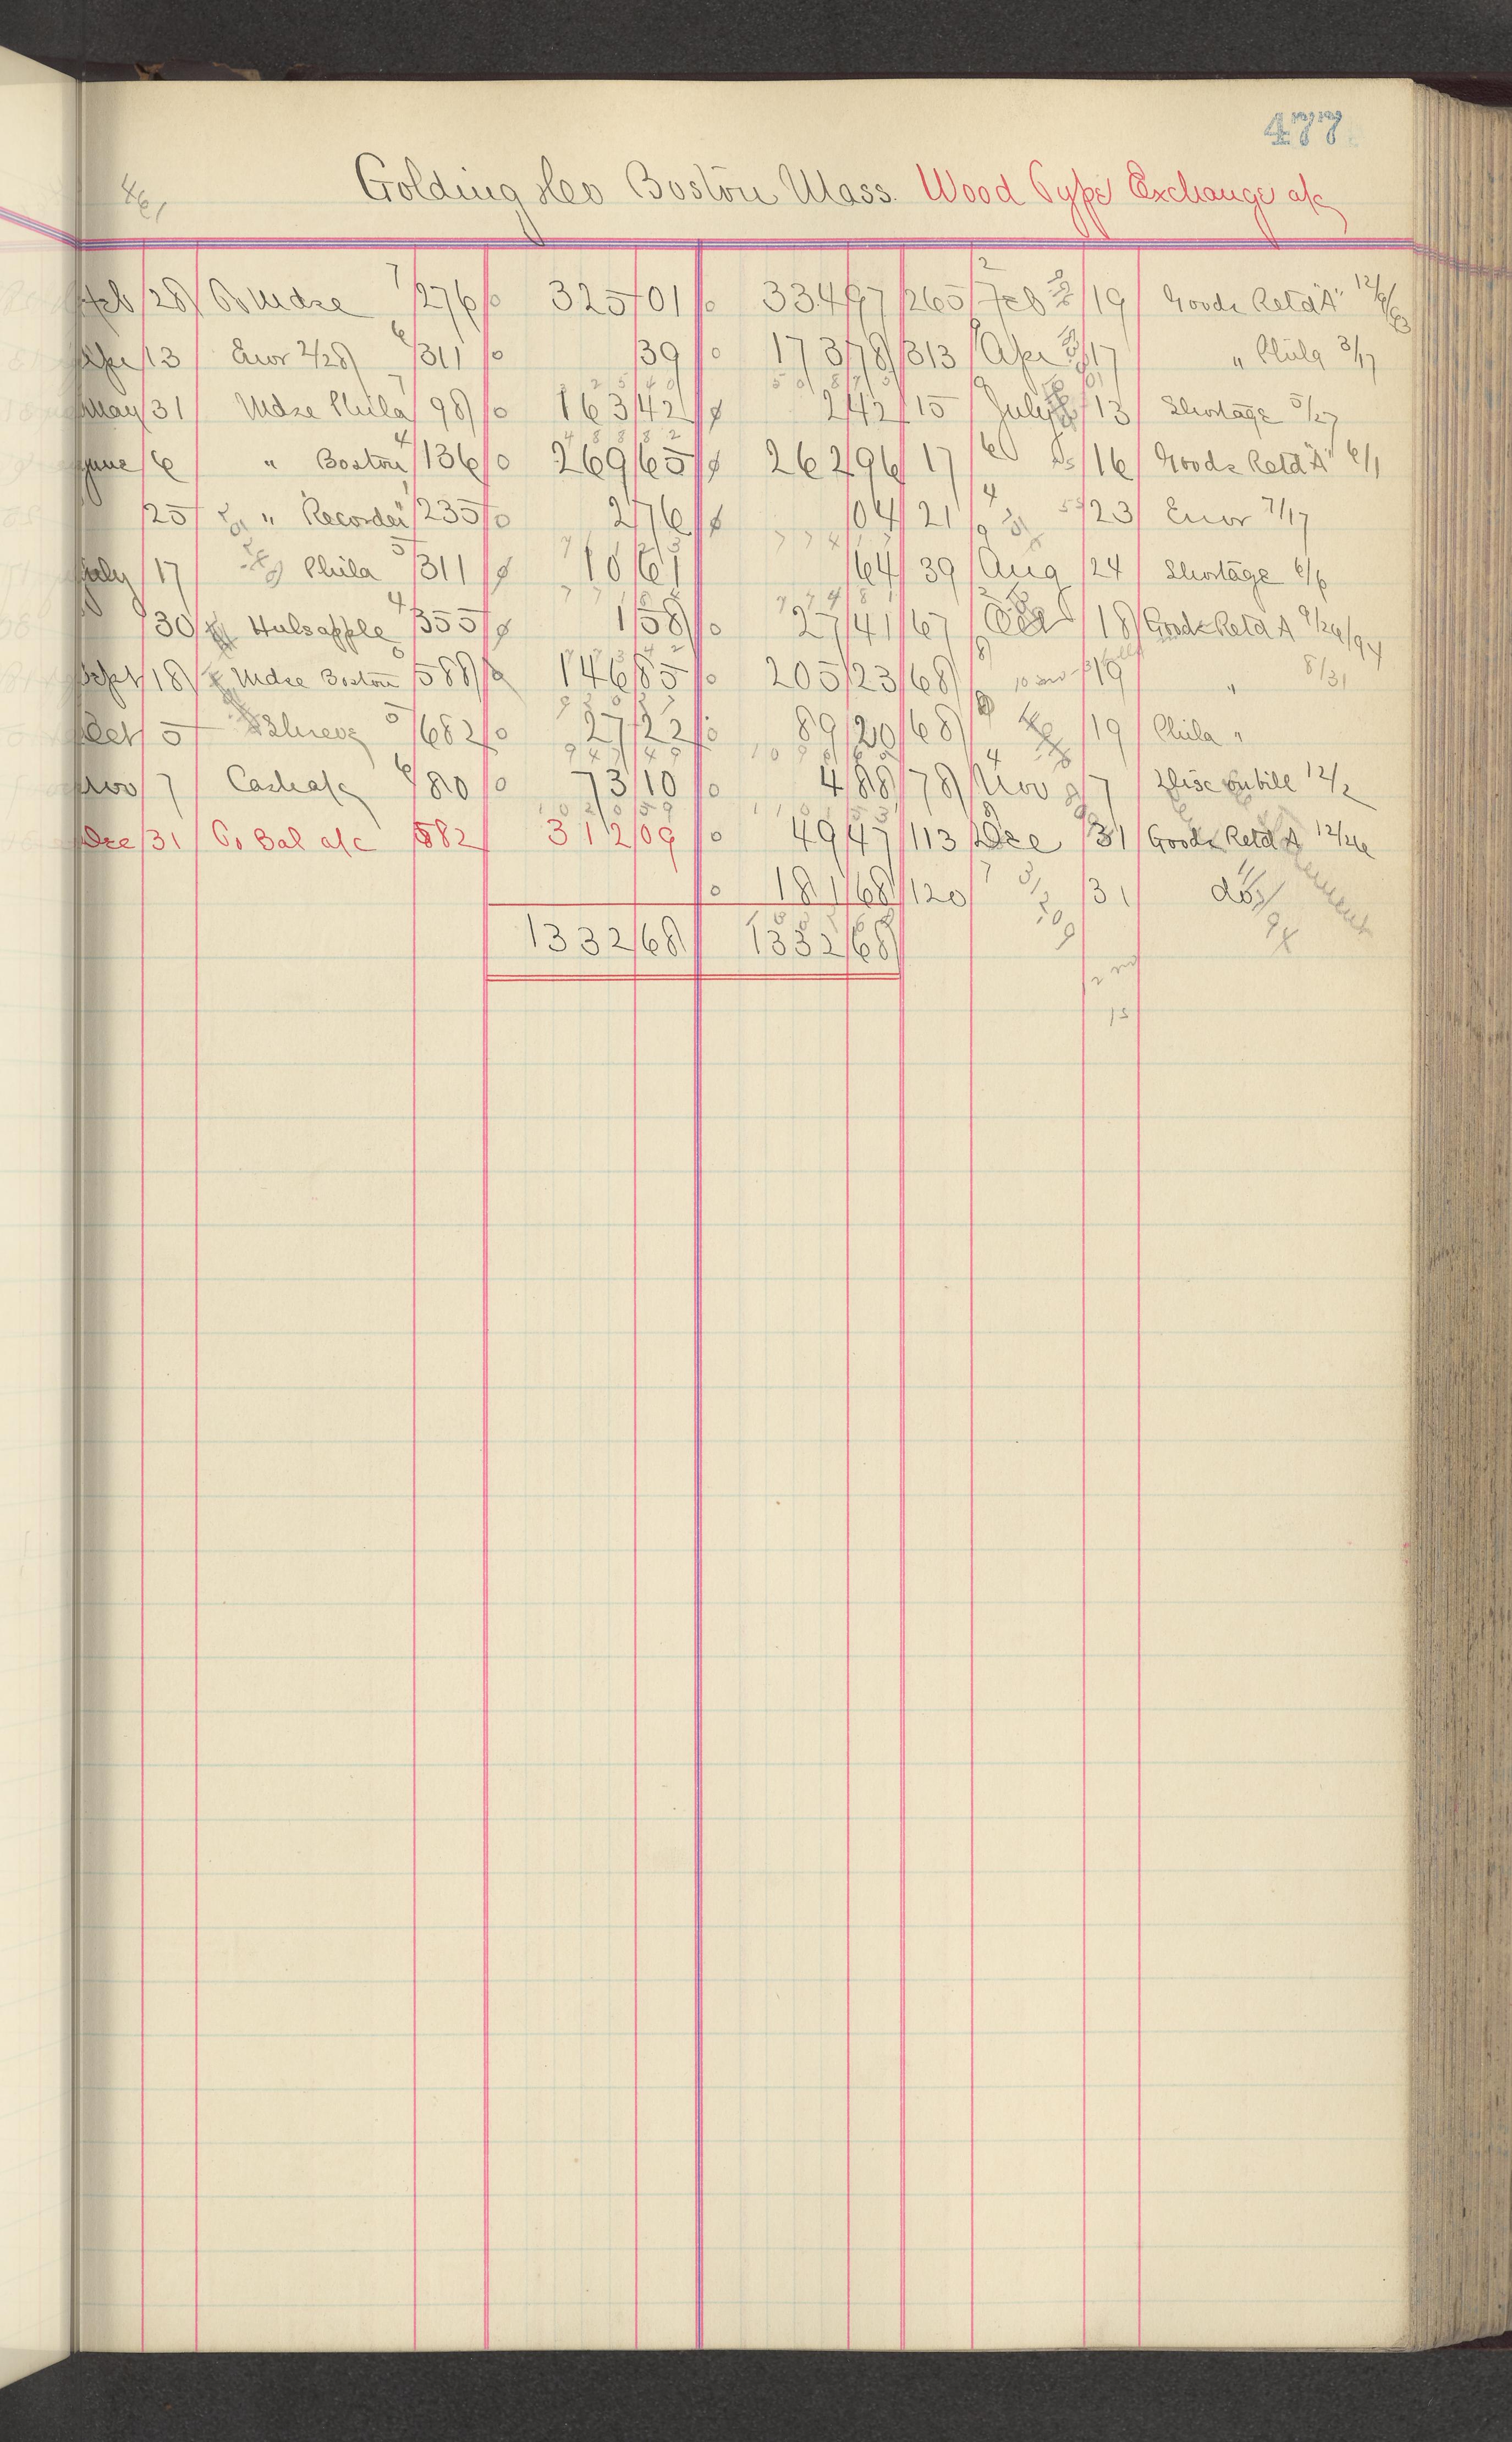 477
461
Golding & Co Boston Mass. Wood Type Exchange a/c
Feb 28 To Mdse 7 276 325 01 334 97 265 2 Feb 19 Goods Retd "A" 12/9/93
Apr 13 Error 2/28 6 311 39 173 78 313 Apr 17 " Phila 3/17
May 31 Mdse Phila 7 98 163 42 2 42 15 July 13 Shortage 5/27
June 6 " Boston 4 136 269 65 262 96 17 6 16 Goods Retd "A" 6/1
25 " Recorder 235 2 76 04 21 4 23 Error 7/17
July 17 Phila 5 311 10 61 64 39 Aug 24 Shortage 6/6
30 Hulsapple 4 355 1 58 27 41 67 18 Goods Retd A 9/26/94
Sept 18 Mdse Boston 588 146 85 205 23 68 8 19 " 8/31
Oct 5 5 682 27 22 89 20 68 19 Phila "
Nov 7 Cash a/c 6 80 73 10 4 88 78 4 Nov 7 Disc on bill 12/2
Dec 31 To Bal a/c 582 312 09 49 47 113 Dec 31 Goods Retd A 12/26
181 68 120 7 31 do
1332 68 1332 68